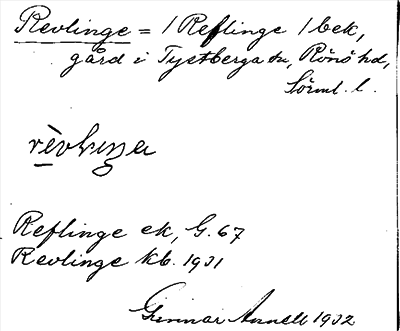 Revlinge = / Reflinge / bek,
gård i Tystberga sn, Rönö hd,
Sörml. l.
rèvliŋɜ
Reflinge ek, G. 67
Revlinge kb. 1931
Gunnar Annell 1932